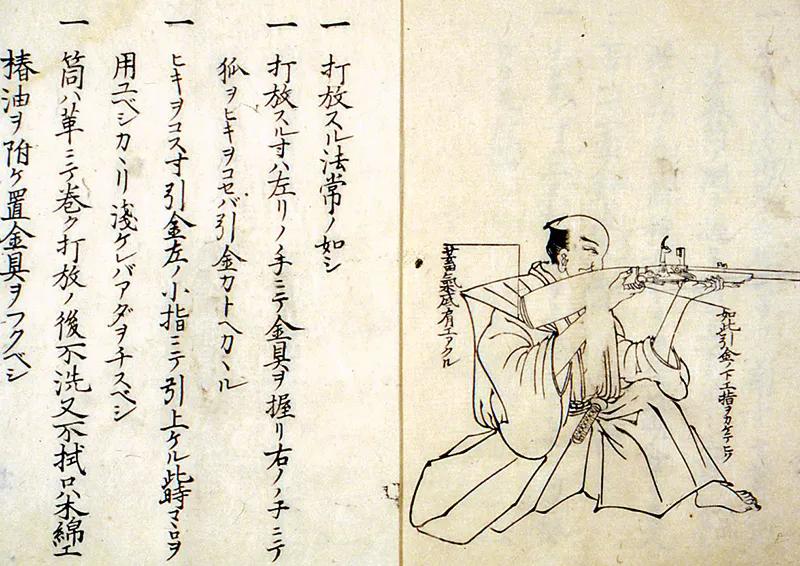 如此引金ノ下エ指ヲカケテヒク
蓄氣底肩エアクル
一 打放スル法常ノ如シ
一 打放スル寸ハ左リノ手ニテ金具ヲ握リ右ノ手ニテ
狐ヲヒキヲコセバ引金カトヘカヽル
一 ヒキヲコス寸引金左ノ小指ニテ引上ケル此時コヽロヲ
用ユベシカヽリ淺ケレバアダヲチスベシ
一 筒ハ革ニテ巻ク打放ノ後不洗又不拭口ハ木綿エ
椿油ヲ附ケ置金具ヲフクベシ